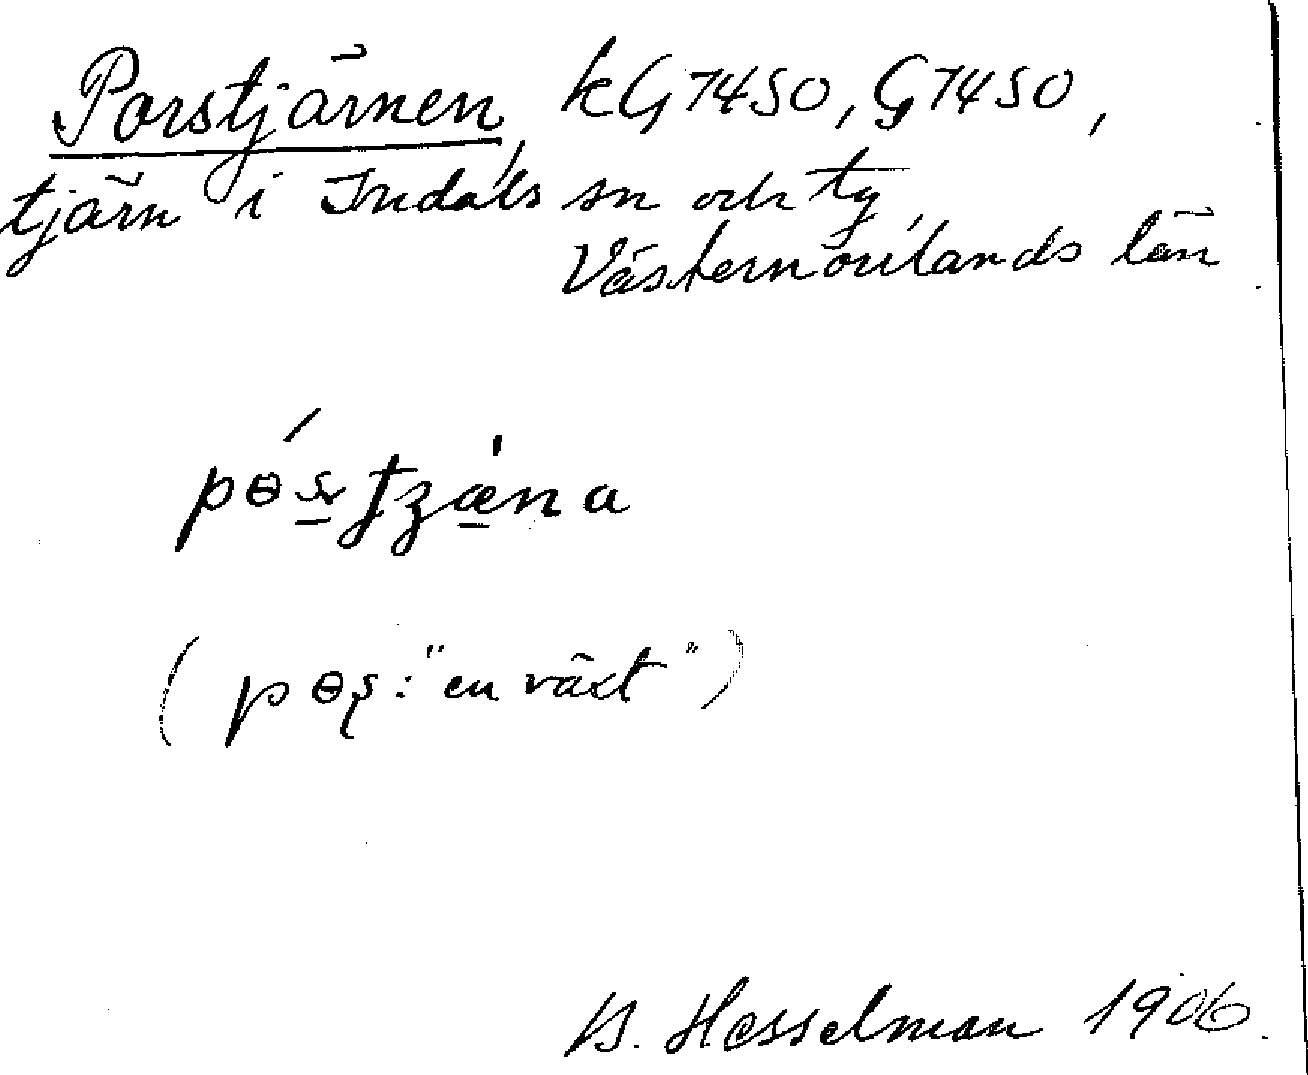 Porstjärnen, kG7450, G7450,
tjärn i Indals sn och tg,
Västernorrlands län
(pɵʂ: "en växt")
B. Hesselman 1906.